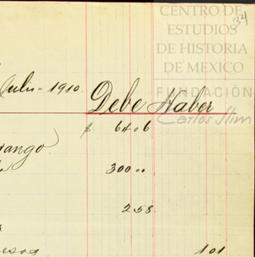 CENTRO DE
ESTUDIOS
DE HISTORIA
DE MEXICO
FUNDACIÓN
Carlos Slim
34
1910
Debe Haber
$ 6406
ango
300 "
2 58
101